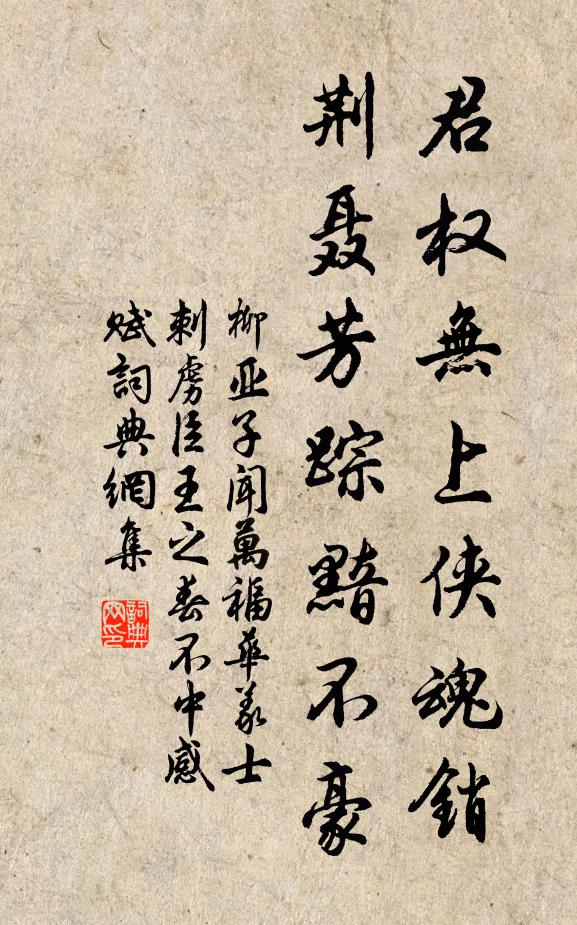 君权無上侠魂銷
荆聂芳踪黯不豪
柳亚子闻萬福华義士
刺虏臣王之春不中感
赋詞典網集
詞典网印